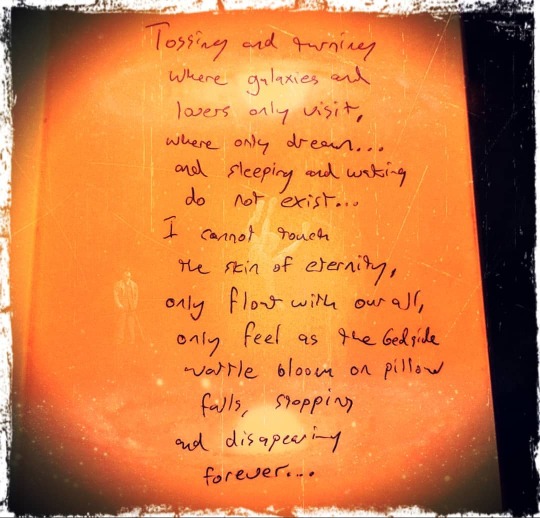 Tossing and turning
where galaxies and
lovers only visit,
where only dream...
and sleeping and waking
do not exist...
I cannot touch
the skin of eternity,
only float with our all,
only feel as the bedside
wattle bloom on pillow
falls, stopping
and disapearing
forever...